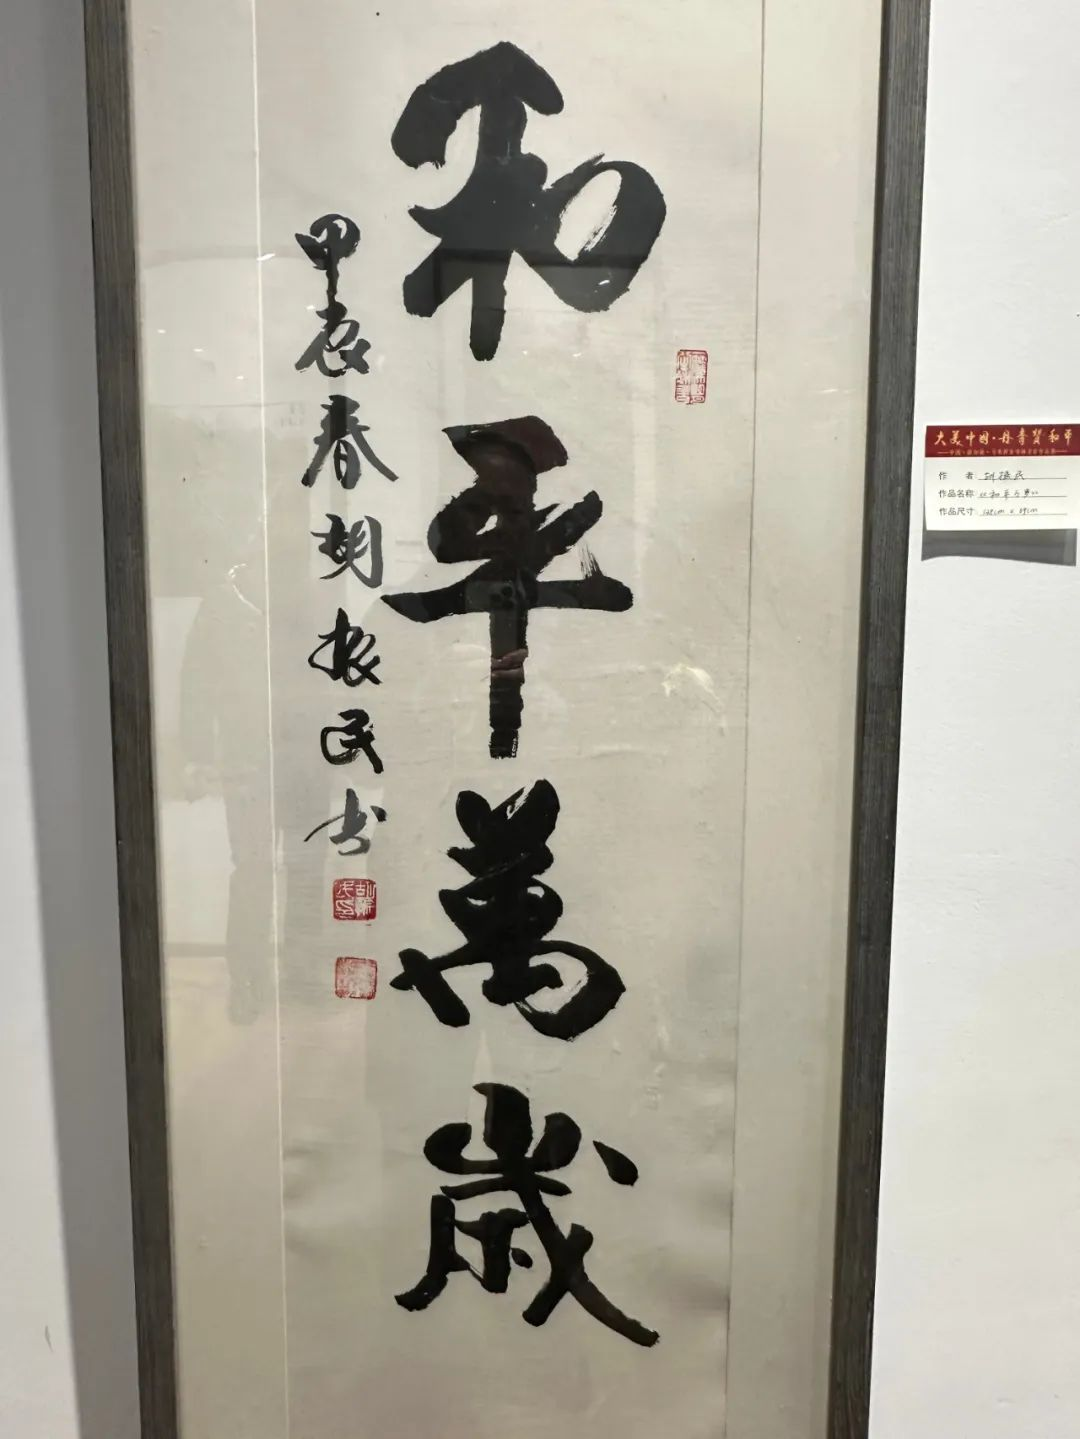 和平萬歲
甲辰春胡振民书
大美中国·丹青赞和平
作 者: 胡振民
作品名称: 《和平万岁》
作品尺寸: